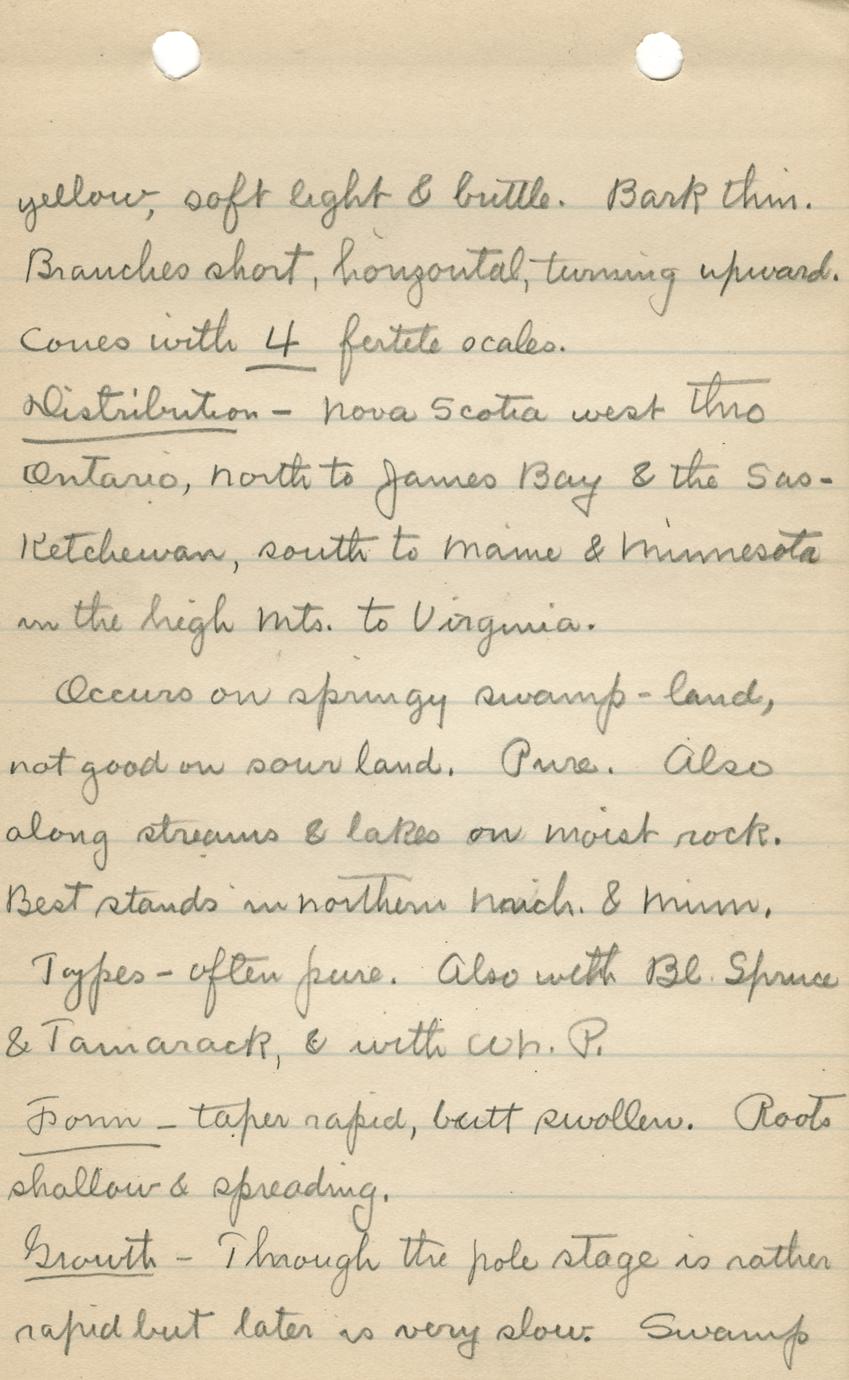 yellow, soft light & brittle. Bark thin.
Branches short, horizontal, turning upward.
Cones with 4 fertile scales.
Distribution - Nova Scotia west thro
Ontario, north to James Bay & the Sas-
Ketchewan, south to Maine & Minnesota
in the high Mts. to Virginia.
Occurs on springy swamp-land,
not good on sour land. Pure. Also
along streams & lakes on moist rock.
Best stands in northern Mich. & Minn.
Types - often pure. Also with Bl. Spruce
& Tamarack, & with Wh. P.
Form - taper rapid, butt swollen. Roots
shallow & spreading.
Growth - Through the pole stage is rather
rapid but later is very slow. Swamp